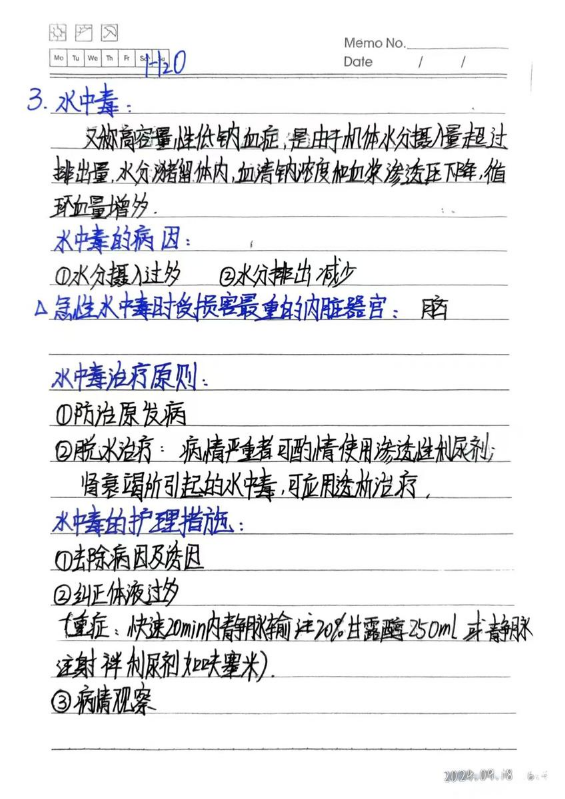 Memo No.
Mo Tu We Th Fr Sa Su
Date / /
H20
3. 水中毒:
又称高容量性低钠血症,是由于机体水分摄入量超过
排出量,水分潴留体内,血清钠浓度和血浆渗透压下降,循
环血量增多.
水中毒的病因:
①水分摄入过多 ②水分排出减少
△急性水中毒时受损害最重的内脏器官: 脑
水中毒治疗原则:
①防治原发病
②脱水治疗: 病情严重者可酌情使用渗透性利尿剂;
肾衰竭所引起的水中毒,可应用透析治疗.
水中毒的护理措施:
①去除病因及诱因
②纠正体液过多
(重症: 快速20min内静脉输注20%甘露醇250ml 或静脉
注射袢利尿剂如呋塞米).
③病情观察